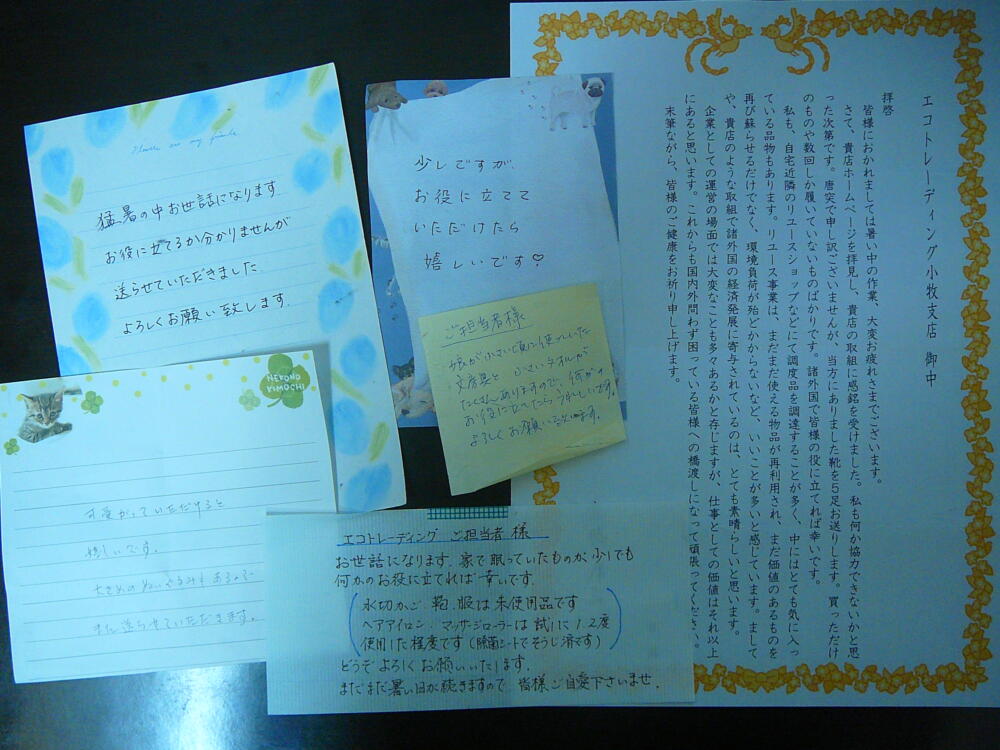 猛暑の中お世話になります。
お役に立てるか分かりませんが
送らせていただきました。
よろしくお願い致します。
少しですが、
お役に立てて
いただけたら
嬉しいです♡
ご担当者様
娘が小さい頃に使っていた
文房具と 小さいタオルが
たくさんありますので、何かの
お役に立てたらうれしいです。
よろしくお願い致します。
NEKONO
KIMOCHI
可愛がっていただけると
嬉しいです。
大きめのぬいぐるみもあるので
また送らせていただきます。
エコトレーディング ご担当者 様
お世話になります。家で眠っていたものが少しでも
何かのお役に立てれば幸いです。
水切かご・靴・服は未使用品です
ヘアアイロン・マッサージローラーは試しに1.2度
使用した程度です(除菌シートでそうじ済です)
どうぞよろしくお願いいたします。
まだまだ暑い日が続きますので 皆様ご自愛下さいませ。
エコトレーディング小牧支店 御中
拝啓
皆様におかれましては暑い中の作業、大変お疲れさまでございます。
さて、貴店ホームページを拝見し、貴店の取組に感銘を受けました。私も何か協力できないかと思
った次第です。唐突で申し訳ございませんが、当方にありました靴を5足お送りします。買っただけ
のものや数回しか履いていないものばかりです。諸外国で皆様の役に立てれば幸いです。
私も、自宅近隣のリユースショップなどにて調度品を調達することが多く、中にはとても気に入っ
ている品物もあります。リユース事業は、まだまだ使える物品が再利用され、まだ価値のあるものを
再び蘇らせるだけでなく、環境負荷が殆どかからないなど、いいことが多いと感じています。まして
や、貴店のような取組で諸外国の経済発展に寄与されているのは、とても素晴らしいと思います。
企業としての運営の場面では大変なことも多々あるかと存じますが、仕事としての価値はそれ以上
にあると思います。これからも国内外問わず困っている皆様への橋渡しになって頑張ってください。
末筆ながら、皆様のご健康をお祈り申し上げます。